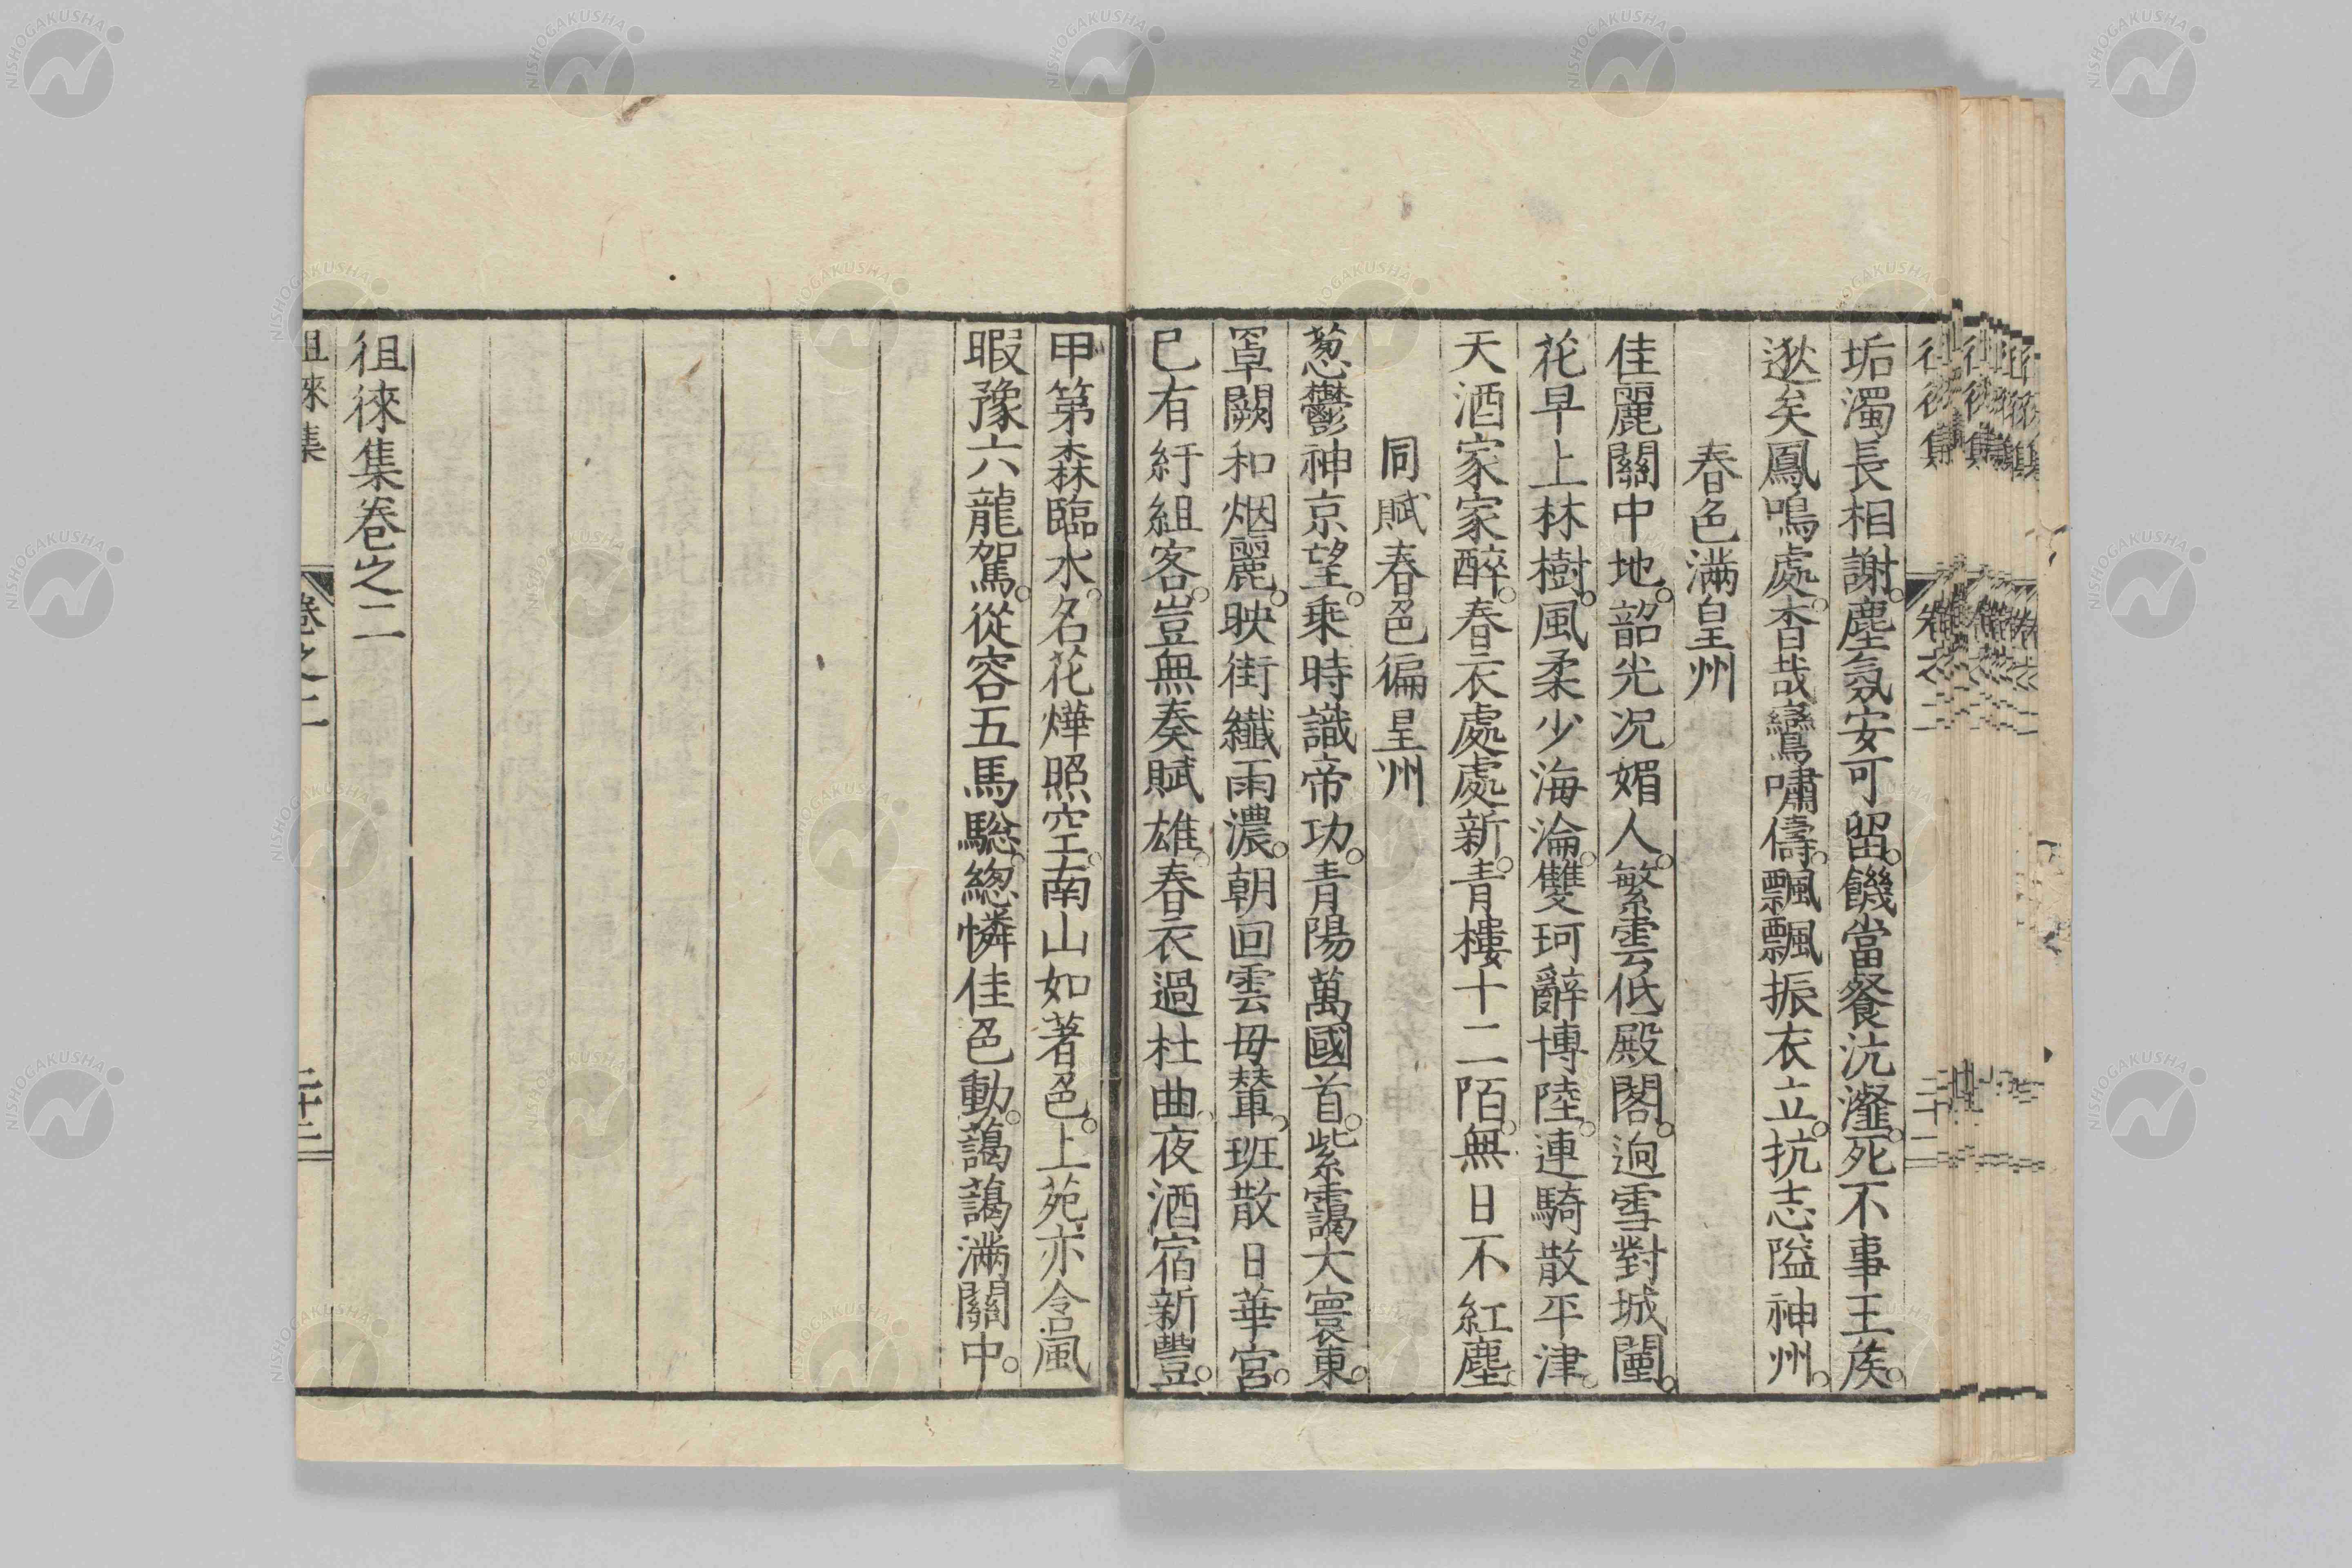 垢濁長相謝。塵氛安可留。饑當餐沆瀣。死不事王矦。
逖矣鳳鳴處。杳哉鸞嘯儔。飄飄振衣立。抗志隘神州。
春色滿皇州
佳麗關中地。韶光况媚人。繁雲低殿閣。迥雪對城闉。
花早上林樹。風柔少海淪。雙珂辭博陸。連騎散平津。
天酒家家醉。春衣處處新。青樓十二陌。無日不紅塵。
同賦春色徧皇州
葱鬱神京望。乘時識帝功。青陽萬國首。紫靄大寰東。
罩闕和烟麗。映街纖雨濃。朝回雲母輦。班散日華宮。
已有紆組客。豈無奏賦雄。春衣過杜曲。夜酒宿新豐。
甲第森臨水。名花燁照空。南山如著色。上苑亦含風
暇豫六龍駕。從容五馬驄。總憐佳色動。藹藹滿關中。
徂徠集卷之二
徂徠集
卷之二
二十三
徂徠集
卷之二
二十二
NISHOGAKUSHA